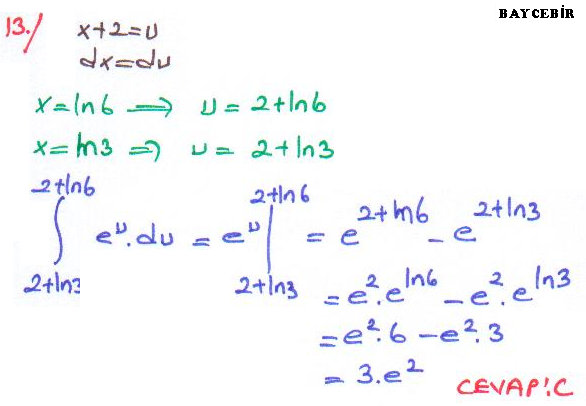 BAYCEBİR
13./ x+2=u
dx=du
x=ln6 ⟹ u=2+ln6
x=ln3 ⟹ u=2+ln3
∫_{2+ln3}^{2+ln6} e^u.du = e^u |_{2+ln3}^{2+ln6} = e^{2+ln6} - e^{2+ln3}
= e^2.e^{ln6} - e^2.e^{ln3}
= e^2.6 - e^2.3
= 3.e^2
CEVAP:C